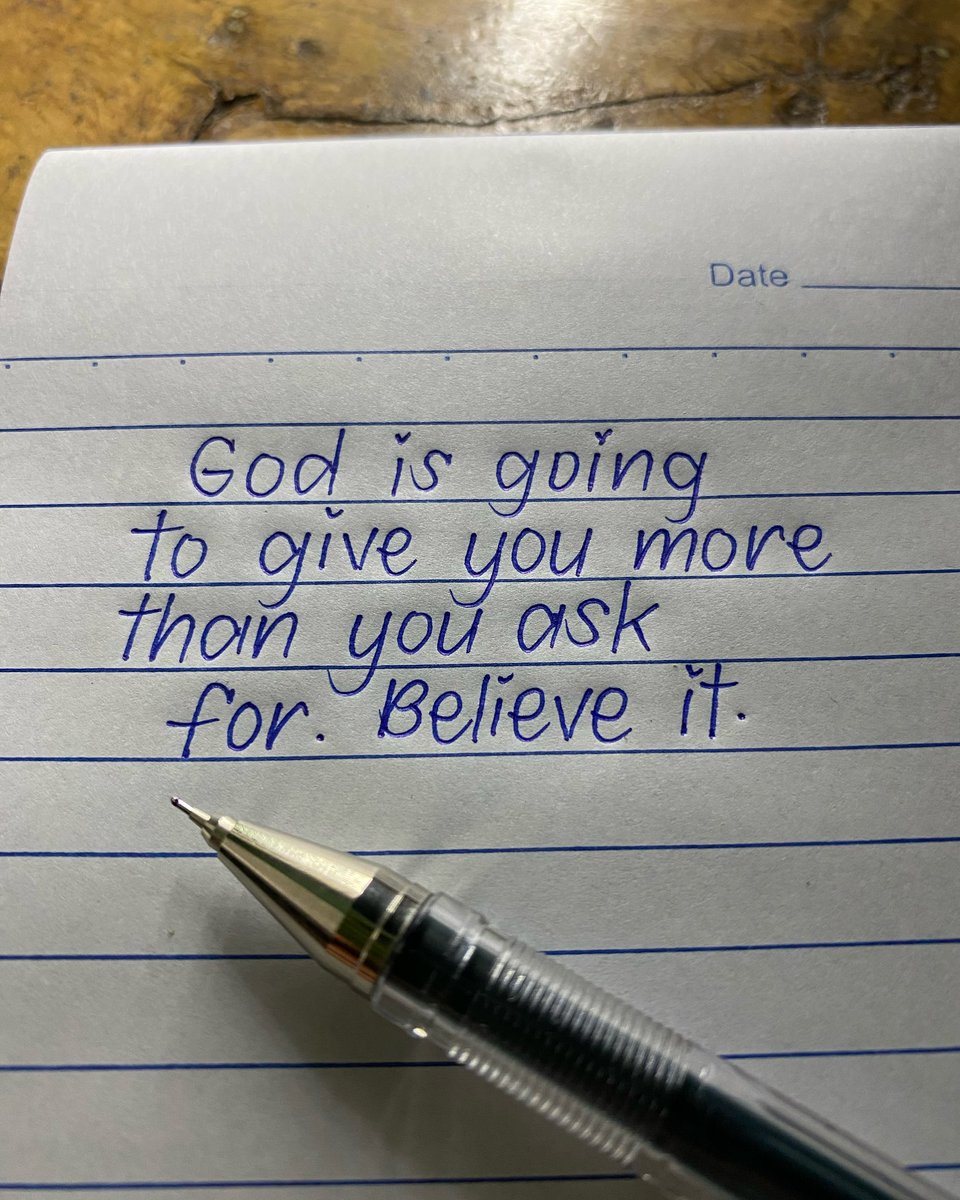 Date
God is going
to give you more
than you ask
for. Believe it.